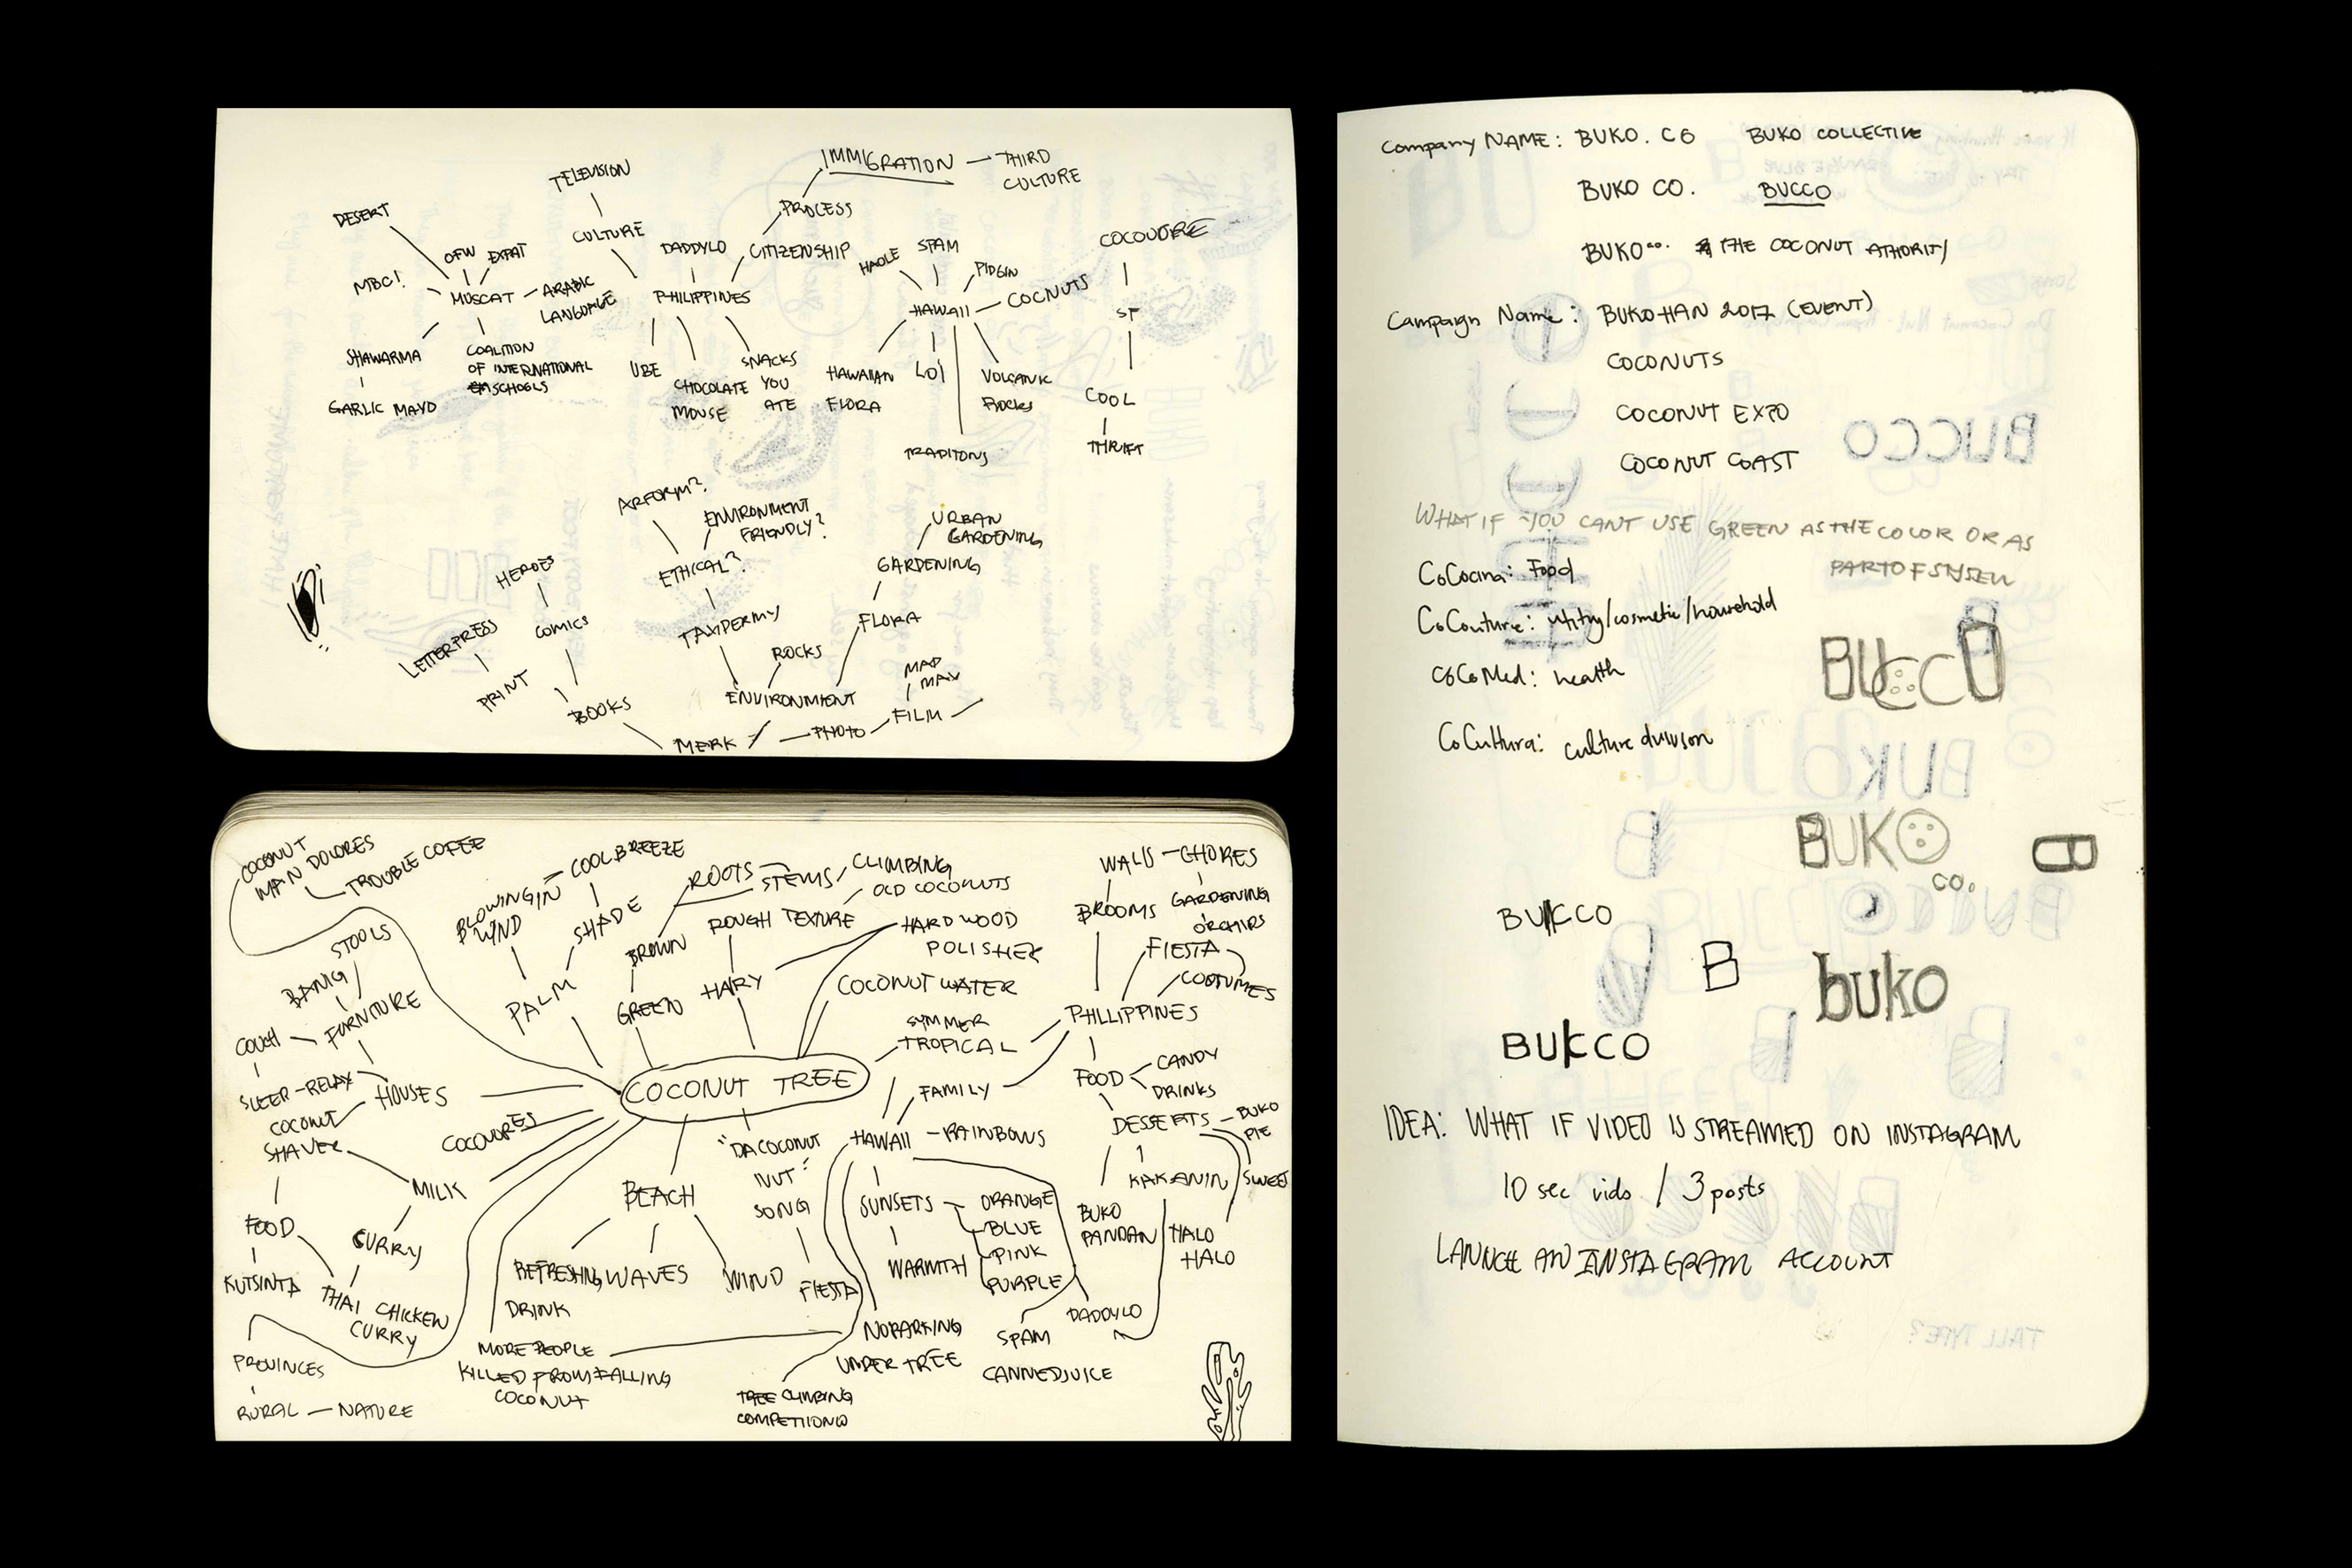 IMMIGRATION — THIRD
CULTURE
TELEVISION
PROCESS
DESERT
CULTURE
DADDYLO
CITIZENSHIP
OFW
EXPAT
MBC!
MUSCAT
ARABIC
LANGUAGE
PHILIPPINES
HAOLE
SPAM
PIDGIN
COCNUTS
HAWAII
COCOVORE
SF
COOL
THRIFT
SHAWARMA
GARLIC MAYO
COALITION
OF INTERNATIONAL
SCHOOLS
UBE
CHOCOLATE
MOUSE
SNACKS
YOU
ATE
HAWAIIAN
FLORA
LOI
VOLCANIC
ROCKS
TRADITONS
ARFORM?
ENVIRONMENT
FRIENDLY?
ETHICAL?
TAXIDERMY
URBAN
GARDENING
GARDENING
FLORA
HEROES
COMICS
LETTERPRESS
PRINT
BOOKS
ROCKS
ENVIRONMENT
MAD
MAX
FILM
PHOTO
MERK
COCONUT
MAN DOLORES
TROUBLE COFEE
BLOWING IN
WIND
COOL BREEZE
SHADE
PALM
ROOTS
STEMS
CLIMBING
OLD COCONUTS
ROUGH TEXTURE
HARD WOOD
POLISHER
BROWN
GREEN
HAIRY
COCONUT WATER
WALIS — CHORES
BROOMS
GARDENING
ORCHIDS
FIESTA
COSTUMES
PHILLIPPINES
STOOLS
BANIG
FURNITURE
COUCH
SLEEP — RELAX
HOUSES
COCONUT
SHAVER
COCOVORES
COCONUT TREE
SYMMER
TROPICAL
FAMILY
FOOD
CANDY
DRINKS
DESSERTS
BUKO
PIE
SWEET
KAKANIN
BUKO
PANDAN
HALO
HALO
MILK
FOOD
CURRY
KUTSINTA
THAI CHICKEN
CURRY
PROVINCES
RURAL — NATURE
BEACH
REFRESHING
DRINK
WAVES
WIND
"DA COCONUT
NUT"
SONG
FIESTA
HAWAII — RAINBOWS
SUNSETS
ORANGE
BLUE
PINK
PURPLE
WARMTH
MORE PEOPLE
KILLED FROM FALLING
COCONUT
NO PARKING
UNDER TREE
TREE CLIMBING
COMPETIIONS
SPAM
CANNED JUICE
DADDYLO
Company NAME: BUKO. CO BUKO COLLECTIVE
BUKO CO. BUCCO
BUKO co. THE COCONUT ATHORITY
Campaign Name: BUKOHAN 2017 (EVENT)
COCONUTS
COCONUT EXPO
COCONUT COAST
BUCCO
WHAT IF YOU CANT USE GREEN AS THE COLOR OR AS
PART OF SYSEM
CoCocina: Food
CoCouture: utitry/cosmetic/household
CoCoMed: health
CoCultura: culture division
BUCCO
BUKO
BUKO
CO.
B
BUKCCO
B
buko
BUKCCO
IDEA: WHAT IF VIDEO IS STREAMED ON INSTAGRAM
10 sec vids / 3 posts
LANNCH AN INSTAGRAM ACCOUNT
TALL TYPE?